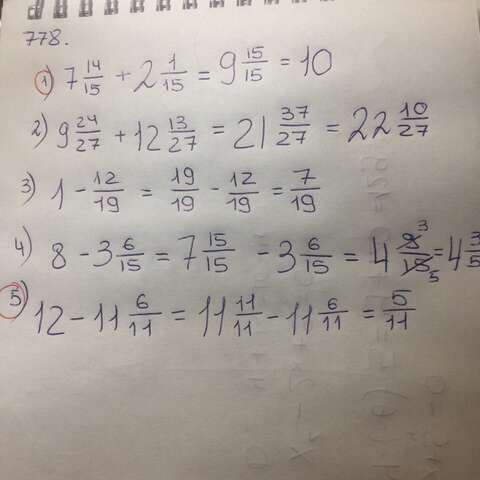 778.
1) 7 14/15 + 2 1/15 = 9 15/15 = 10
2) 9 24/27 + 12 13/27 = 21 37/27 = 22 10/27
3) 1 - 12/19 = 19/19 - 12/19 = 7/19
4) 8 - 3 6/15 = 7 15/15 - 3 6/15 = 4 9 3/15 5 = 4 3/5
5) 12 - 11 6/11 = 11 11/11 - 11 6/11 = 5/11